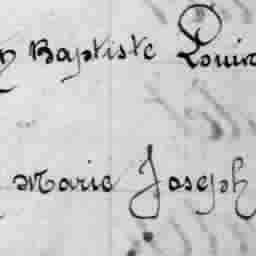 Baptiste Louis
Marie Joseph